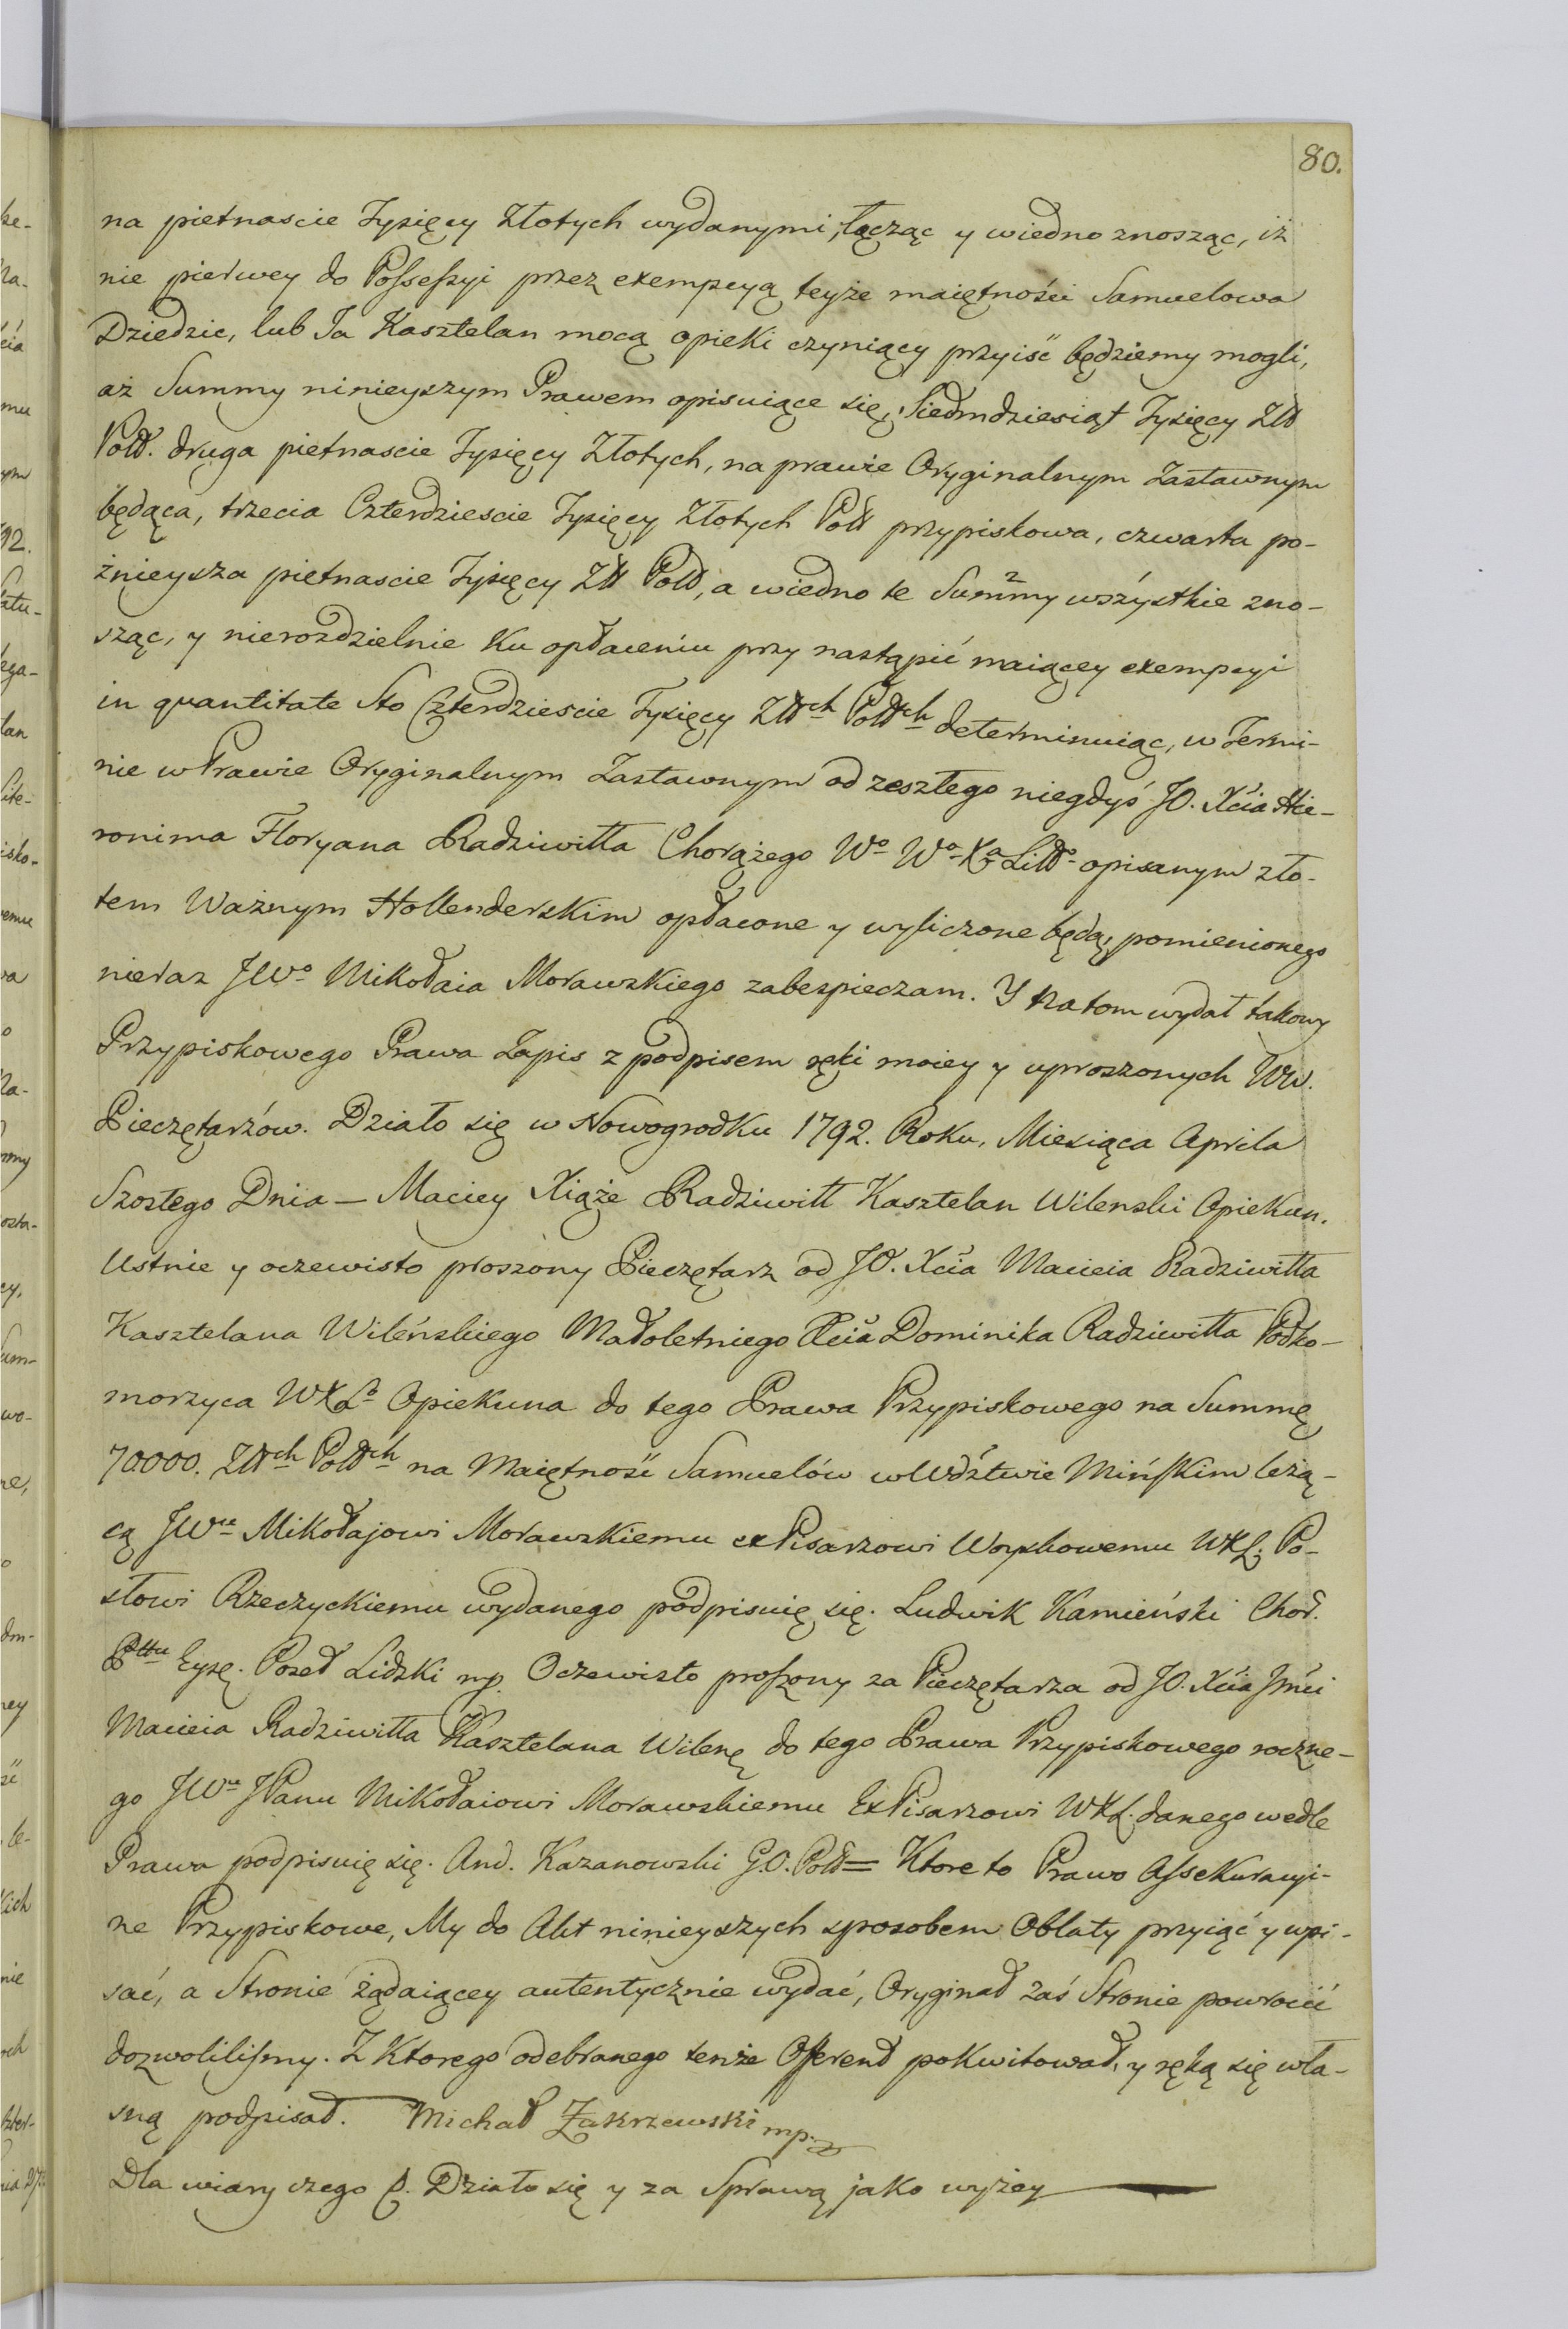 80.
na pietnascie Tysięcy Złotych wydanymi, łącząc y wiedno znosząc, iż
nie pierwey do Possessyi przez exempcyą teyże maiętności Samuelowa
Dziedzic, lub Ja Kasztelan mocą opieki czyniący przyiść będziemy mogli,
aż Summy ninieyszym Prawem opisuiące się, Siedmdziesiąt Tysięcy Złł
Poll. druga pietnascie Tysięcy Złotych, na prawie Oryginalnym Zastawnym
będąca, trzecia Czterdziescie Tysięcy Złotych Poll przypiskowa, czwarta po-
żnieysza pietnascie Tysięcy Złł Poll, a wiedno te Summy wszystkie zno-
sząc, y nierozdzielnie Ku opłaceniu przy nastąpić maiącey exempcyi
in quantitate Sto Czterdziescie Tysięcy Złłch Pollch determinuiąc, w Termi-
nie w Prawie Oryginalnym Zastawnym od zeszłego niegdyś JO. Xcia Hie-
ronima Floryana Radziwiłła Chorążego Wo Wo Xa Litto opisanym zło-
tem Ważnym Hollenderskim opłacone y wyliczone będą, pomienionego
nieraz JWo Mikołaia Morawskiego zabezpieczam. Y na tom wydał takowy
Przypiskowego Prawa Zapis z podpisem ręki moiey y uproszonych WW.
Pieczętarzów. Działo się w Nowogrodku 1792. Roku, Miesiąca Aprila
Szostego Dnia — Maciey Xiąże Radziwiłł Kasztelan Wilenski Opiekun.
Ustnie y oczewisto proszony Pieczętarz od JO. Xcia Macieia Radziwiłła
Kasztelana Wileńskiego Małoletniego Xcia Dominika Radziwiłła Podko-
morzyca WXLo Opiekuna do tego Prawa Przypiskowego na Summę
70000. Złłch Pollch na Maiętność Samuelów w Wdztwie Mińskim leżą-
cą JWu Mikołajowi Morawskiemu exPisarzowi Woyskowemu WXL. Po-
słowi Rzeczyckiemu wydanego podpisuię się. Ludwik Kamieński Chor.
Pttu Eyszę. Poseł Lidzki mp. Oczewisto proszony za Pieczętarza od JO. Xcia Jmci
Macieia Radziwiłła Kasztelana Wilenę do tego Prawa Przypiskowego roczne-
go JWu JPanu Mikołaiowi Morawskiemu ExPisarzowi WXL. danego wedle
Prawa podpisuię się. And. Kazanowski G.O. Poll = Ktore to Prawo Assekuracyi-
ne Przypiskowe, My do Akt ninieyszych sposobem Oblaty przyiąć y wpi-
sać, a Stronie żądaiącey autentycznie wydać, Oryginał zaś Stronie powrocić
dozwolilismy. Z Ktorego odebranego tenże Offerend pokwitował, y ręką się wła-
sną podpisał. Michał Zakrzewski mp.
Dla wiary czego p. Działo się y za Sprawą jako wyżey